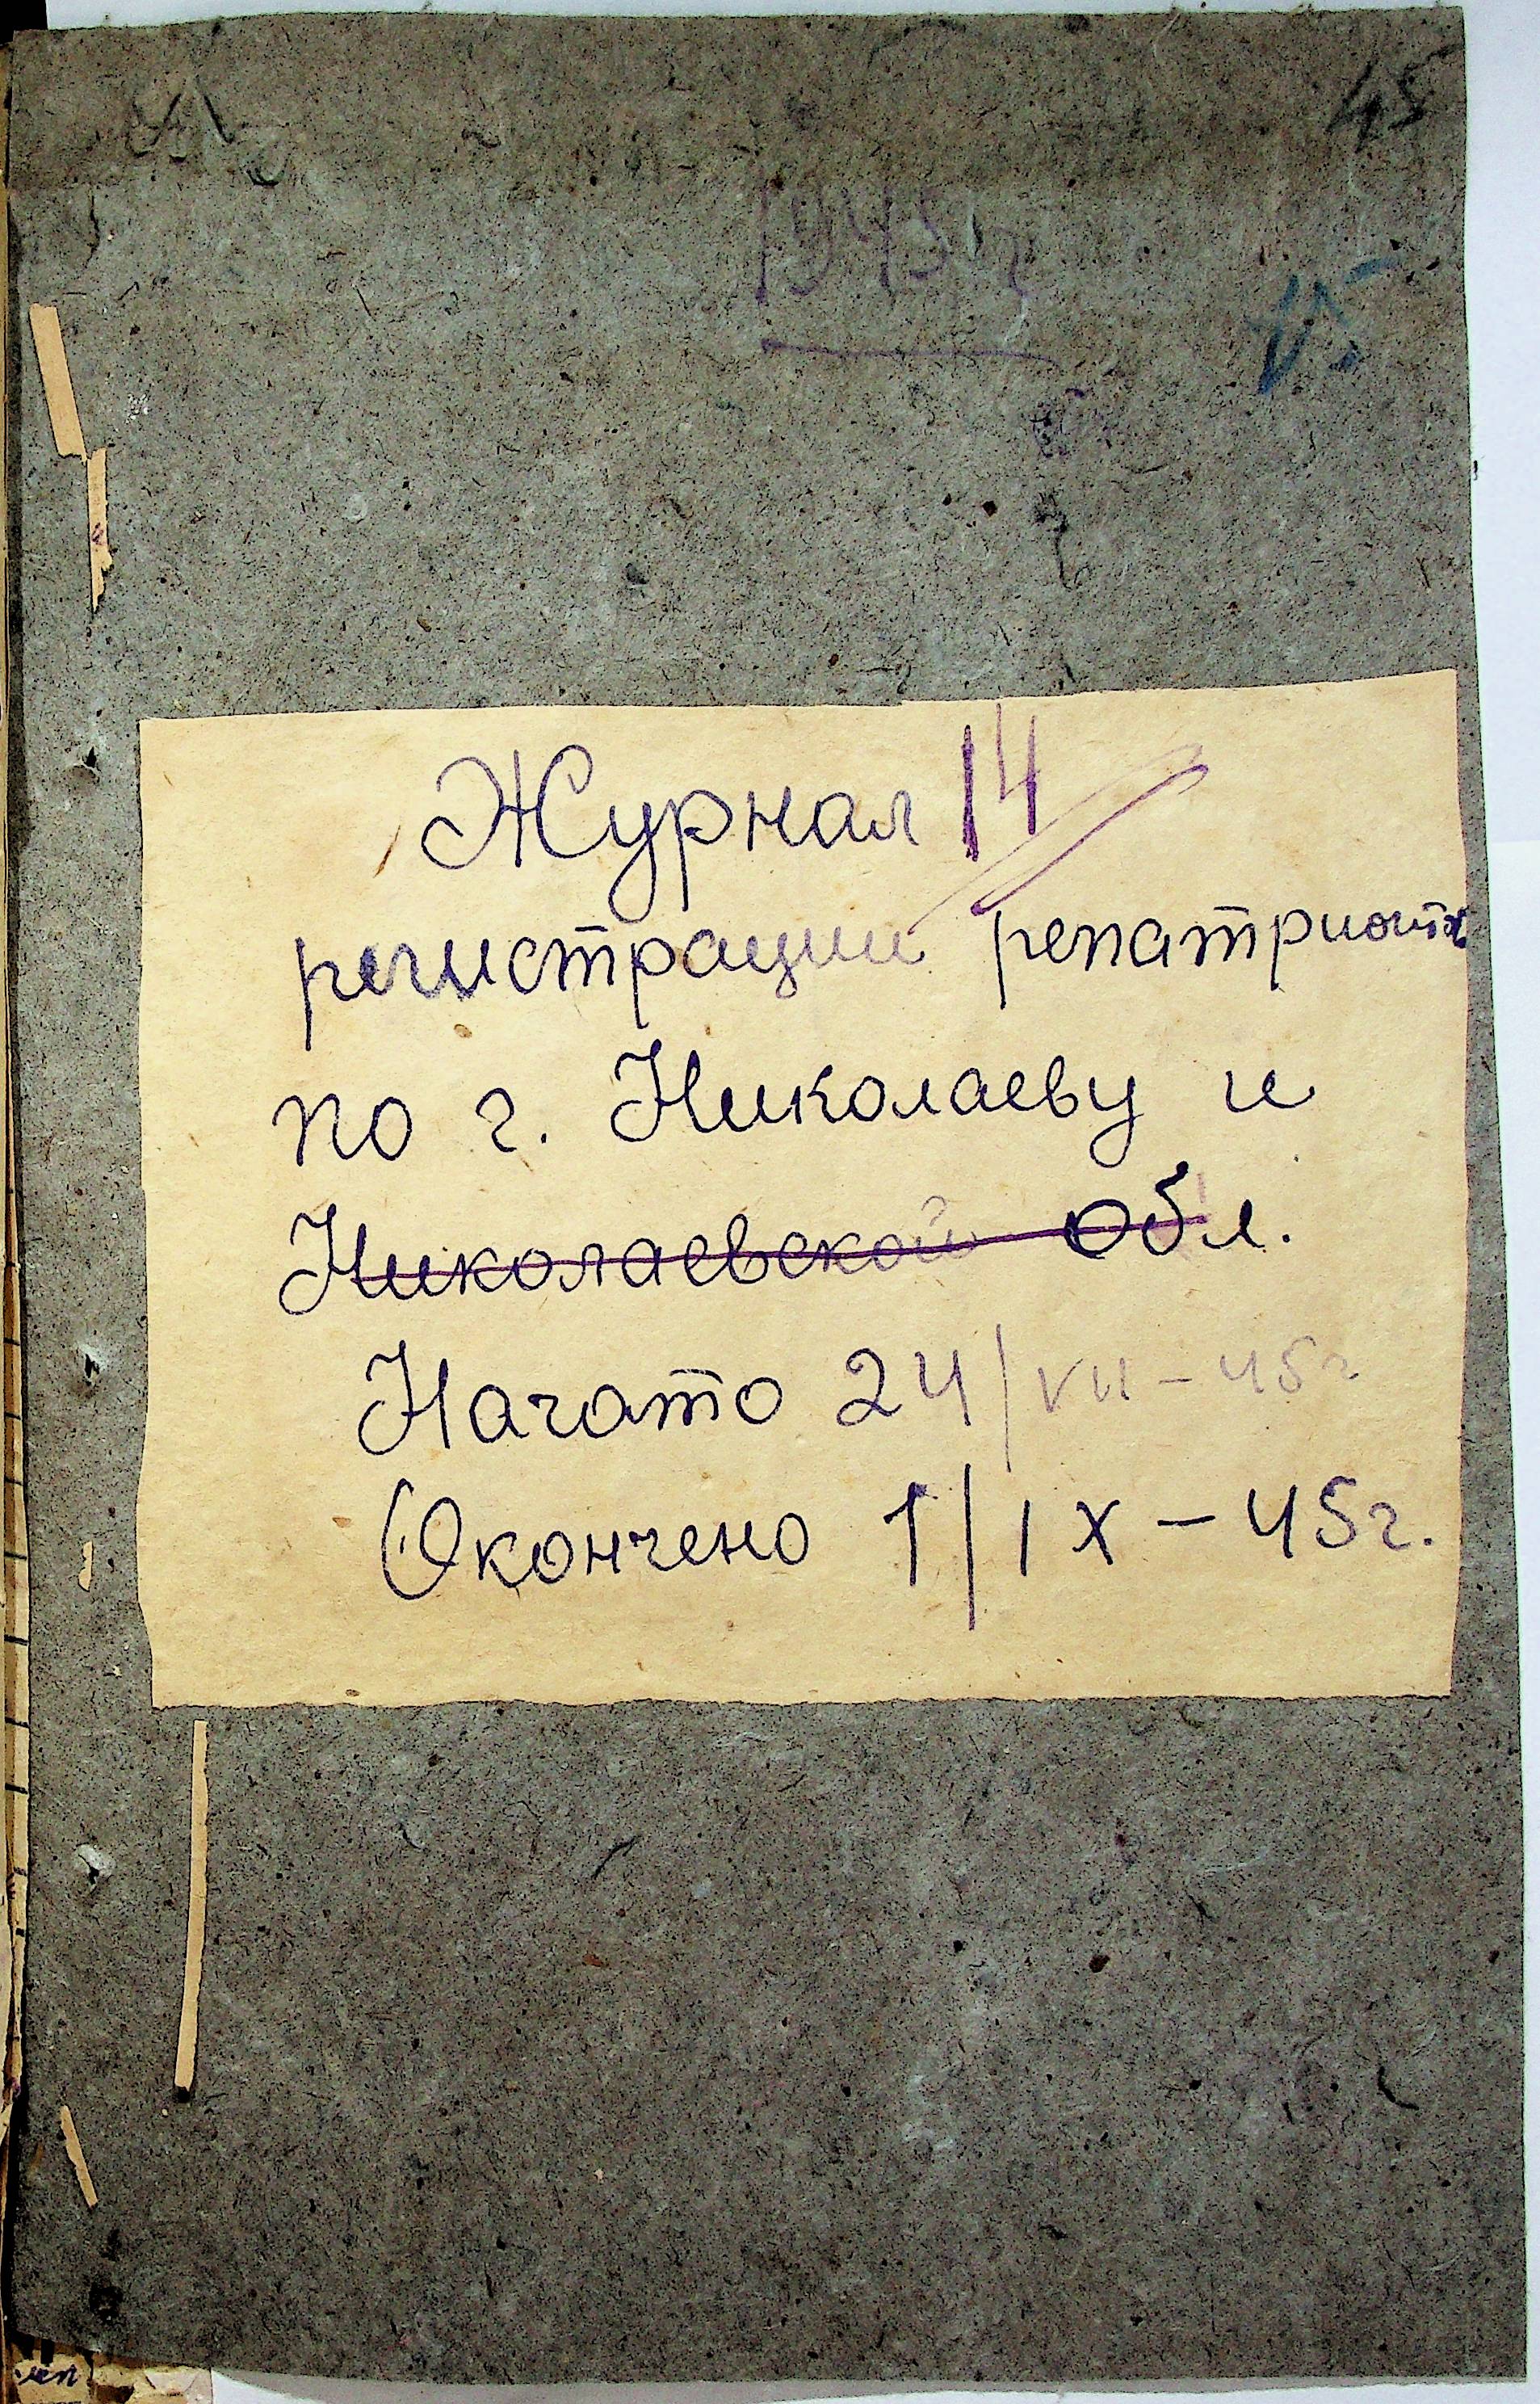 45
1945 г
Журнал 14
регистрации репатриантов
по г. Николаеву и
Николаевской обл.
Начато 24/VII-45г
Окончено 1/IX-45г.